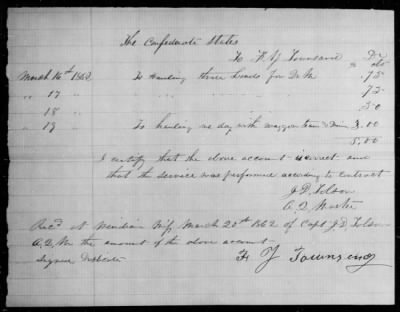 The Confederate States
To F. Y. Townsend Dr
$ cts
March 16th 1862 To Hauling three Loads for Q. M .75
" 17 " " " " .75
18 " " " " .50
" 19 To hauling one day with waggon team & Driver 3.00
5.00
I certify that the above account is correct and
that the service was performed according to contract
J. D. Tolson
A. Q. Master
Recd at Meridian Miss March 20th 1862 of Capt J. D. Tolson
A. Q. M the amount of the above account
Signed
F Y Townsend